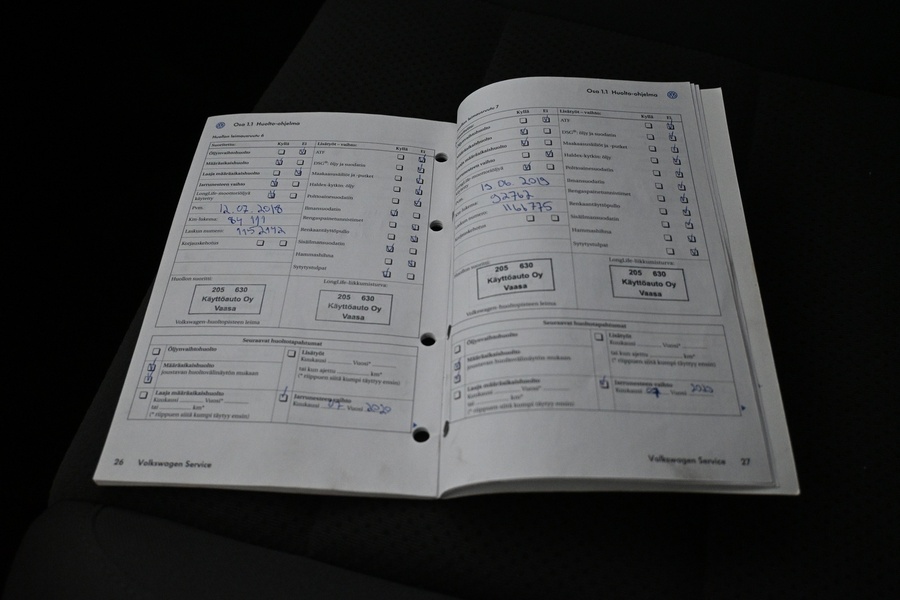 Osa 1.1 Huolto-ohjelma
Huollon leimausruutu 6
Suoritettu: Kyllä Ei
Öljynvaihtohuolto
Määräaikaishuolto
Laaja määräaikaishuolto
Jarrunesteen vaihto
LongLife-moottoriöljyä
käytetty
Pvm. 12.07.2018
Km-lukema: 84 111
Laskun numero: 1152142
Korjauskehotus
Lisätyöt – vaihto: Kyllä Ei
ATF
DSG®: öljy ja suodatin
Haldex-kytkin, öljy
Polttoainesuodatin
Ilmansuodatin
Raikasilmasuodatin
Hammashihna
Sytytystulpat
Huollon suoritti:
205 630
Käyttöauto Oy
Vaasa
Volkswagen-huoltopisteen leima
LongLife-liikkumisturva:
205 630
Käyttöauto Oy
Vaasa
Seuraavat huoltotapahtumat
Öljynvaihtohuolto
Määräaikaishuolto
Joustavan huoltovälinäytön mukaan
Laaja määräaikaishuolto
Kuukausi Vuosi*
tai km*
(* riippuen siitä kumpi täyttyy ensin)
Lisätyöt
Kuukausi Vuosi*
tai kun ajettu km*
(* riippuen siitä kumpi täyttyy ensin)
Jarrunesteen vaihto
Kuukausi 07 Vuosi 2020
26 Volkswagen Service
Osa 1.1 Huolto-ohjelma
Huollon leimausruutu 7
Kyllä Ei
Lisätyöt – vaihto:
ATF
DSG®: öljy ja suodatin
Haldex-kytkin, öljy
Polttoainesuodatin
Ilmansuodatin
Raikasilmasuodatin
Hammashihna
Sytytystulpat
19.06.2019
92762
1161775
Huollon suoritti:
205 630
Käyttöauto Oy
Vaasa
Volkswagen-huoltopisteen leima
LongLife-liikkumisturva:
205 630
Käyttöauto Oy
Vaasa
Seuraavat huoltotapahtumat
Öljynvaihtohuolto
Määräaikaishuolto
Joustavan huoltovälinäytön mukaan
Laaja määräaikaishuolto
Kuukausi Vuosi*
tai km*
(* riippuen siitä kumpi täyttyy ensin)
Lisätyöt
Kuukausi Vuosi*
tai kun ajettu km*
(* riippuen siitä kumpi täyttyy ensin)
Jarrunesteen vaihto
Kuukausi 07 Vuosi 2020
Volkswagen Service 27